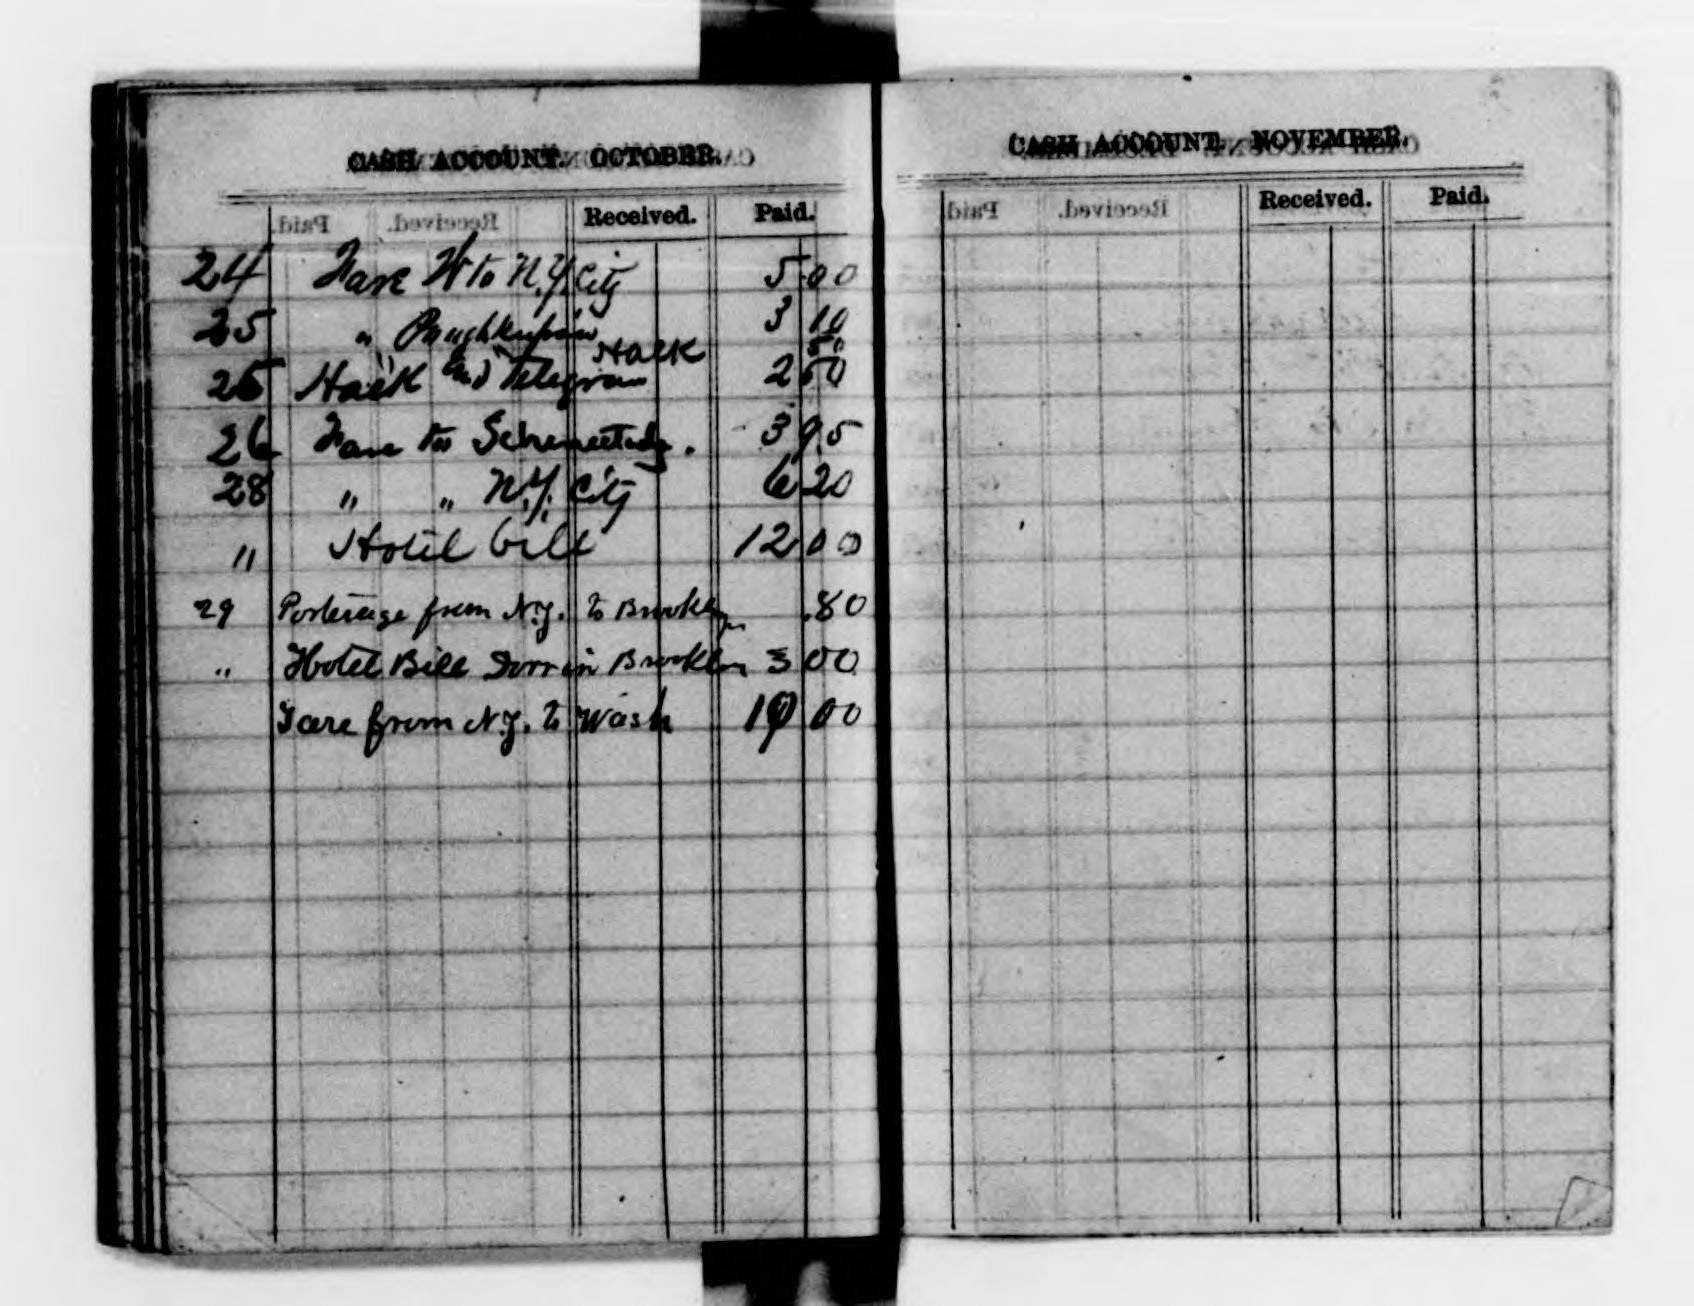 CASH ACCOUNT. OCTOBER.
Received. Paid.
24 Fare W to N.Y. City 5 00
25 " Poughkeepsie 3 10
Hack 50
25 Hack and Telegram 2 50
26 Fare to Schenectady. 3 95
28 " " N.Y. City 6 20
" Hotel bill 12 00
29 Porterage from N.Y. to Brooklyn .80
" Hotel Bill in Brooklyn 3 00
Fare from N.Y. to Wash 00
CASH ACCOUNT. NOVEMBER.
Received. Paid.